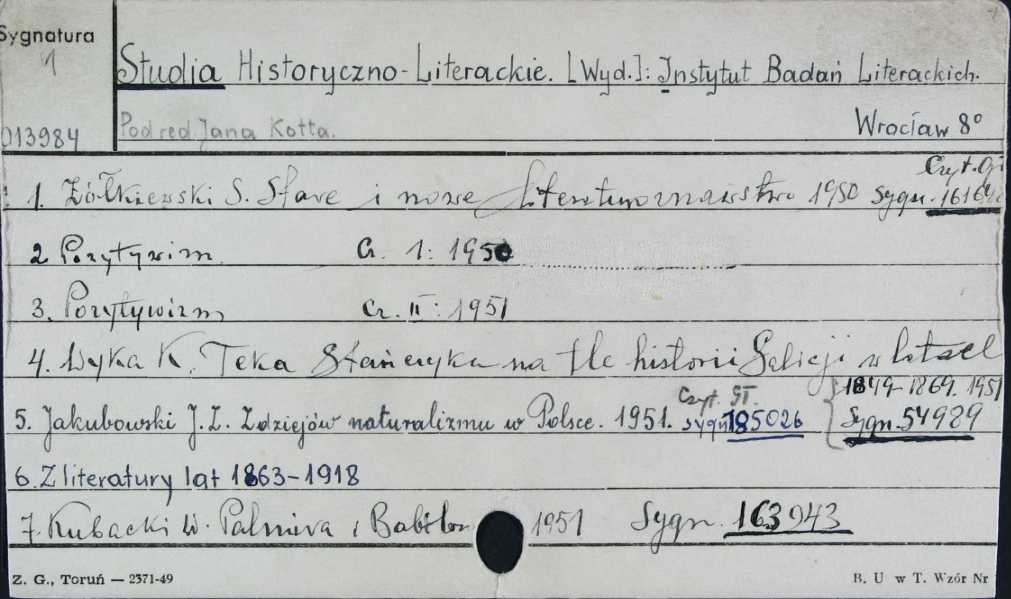 Sygnatura
1
013984
Studia Historyczno-Literackie. [Wyd.]: Instytut Badań Literackich.
Pod red. Jana Kotta.
Wrocław 8°
Czyt. Gł
1. Żółkiewski S. Stare i nowe literaturoznawstwo 1950 Sygn.
2 Pozytywizm Cz. 1: 1950
3. Pozytywizm cz. II: 1951
4. Wyka K. Teka Stańczyka na tle historii Galicji w latach
1849-1869. 1951
Czyt. Gł.
5. Jakubowski J.Z. Z dziejów naturalizmu w Polsce. 1951. sygn 185026
Sygn. 54989
6. Z literatury lat 1863-1918
7. Kubacki W. Palmira i Babilon 1951 Sygn. 163943
Z. G., Toruń — 2371-49
B. U w T. Wzór Nr